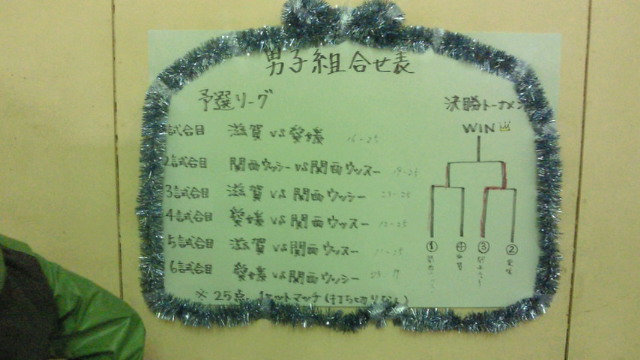 男子組合せ表
予選リーグ
試合目 滋賀 vs 愛媛 16-25
2試合目 関西ウッシー vs 関西ウッスー 19-25
3試合目 滋賀 vs 関西ウッシー 23-25
4試合目 愛媛 vs 関西ウッスー
5試合目 滋賀 vs 関西ウッスー
6試合目 愛媛 vs 関西ウッシー
※ 25点 1セットマッチ (打ち切りなし)
決勝トーナメン
WIN
① ④ ③ ②
滋賀
愛媛